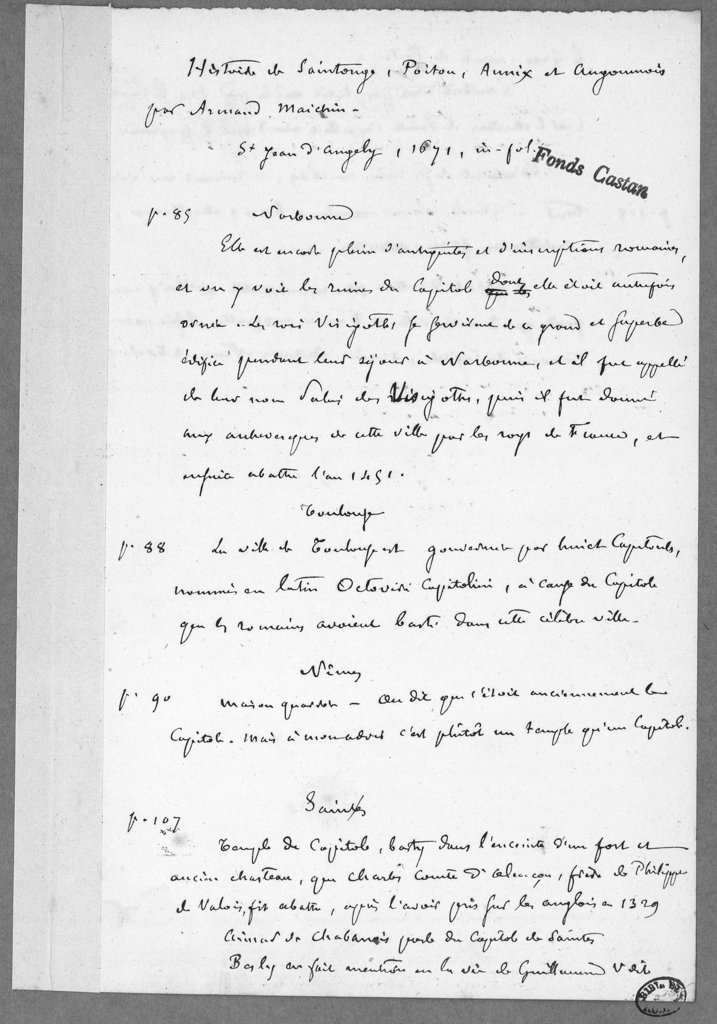 Histoire de Saintonge, Poitou, Aunix et Angoumois
par Armand Maichin -
St Jean d'Angely, 1671, in-fol.
Fonds Castan
p. 85 Narbonne
Elle est encore pleine d'antiquités et d'inscriptions romaines,
et on y voit les ruines du Capitole dont elle étoit autrefois
ornée. Les rois Visigoths se servirent de ce grand et superbe
édifice pendant leur séjour à Narbonne, et il fut appellé
de leur nom Palais des Visigoths, puis il fut donné
aux archevesques de cette ville par les roys de France, et
enfin abattu l'an 1451.
Toulouse
p. 88 La ville de Toulouse est gouvernée par huict Capitouls,
nommés en latin Octoviri Capitolini, à cause du Capitole
que les romains avoient basti dans cette célèbre ville -
Nîmes
p. 90 Maison quarrée - On dit que c'étoit anciennement le
Capitole. Mais à mon advis c'est plûtôt un temple qu'un Capitole.
Saintes
p. 107
Temple du Capitole, basty dans l'enceinte d'un fort et
ancien chasteau, que Charles Comte d'Alençon, frère de Philippe
de Valois, fit abattre, après l'avoir pris sur les anglois en 1329
Aimar de Chabanois parle du Capitole de Saintes
Besly en fait mention en la vie de Guillaume V dit